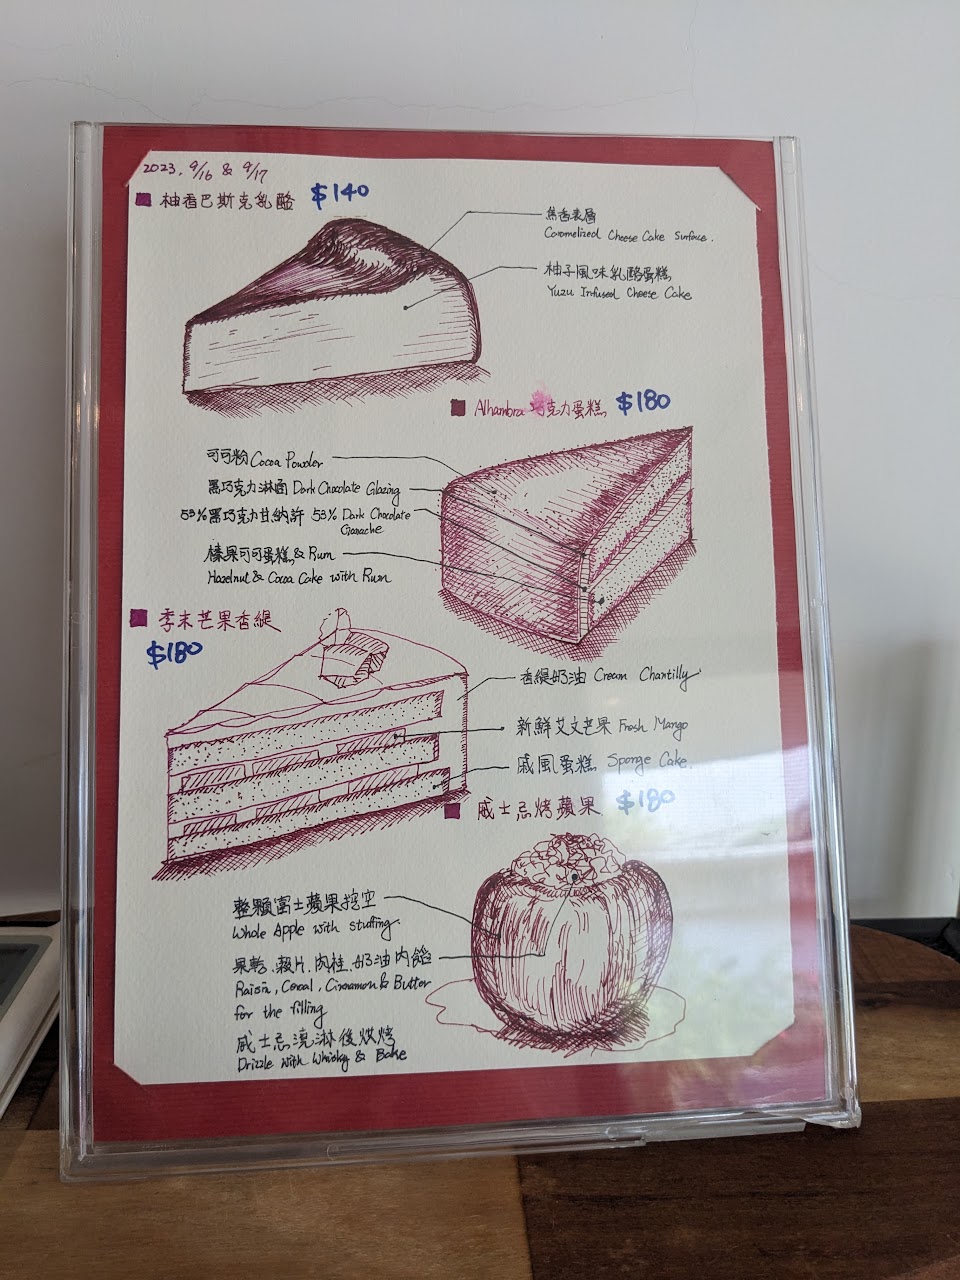 2023. 9/16 & 9/17
柚香巴斯克乳酪 $140
焦香表層
Caramelized Cheese Cake Surface.
柚子風味乳酪蛋糕
Yuzu Infused Cheese Cake
Alhambra 巧克力蛋糕 $180
可可粉 Cocoa Powder
黑巧克力淋面 Dark Chocolate Glazing
53%黑巧克力甘納許 53% Dark Chocolate
Ganache
榛果可可蛋糕 & Rum
Hazelnut & Cocoa Cake with Rum
季末芒果香緹
$180
香緹奶油 Cream Chantilly
新鮮艾文芒果 Fresh Mango
戚風蛋糕 Sponge Cake.
威士忌烤蘋果 $180
整顆富士蘋果挖空
Whole Apple with stuffing
果乾.穀片.肉桂.奶油內餡
Raisin, Cereal, Cinnamon & Butter
for the filling
威士忌澆淋後烘烤
Drizzle with Whisky & Bake